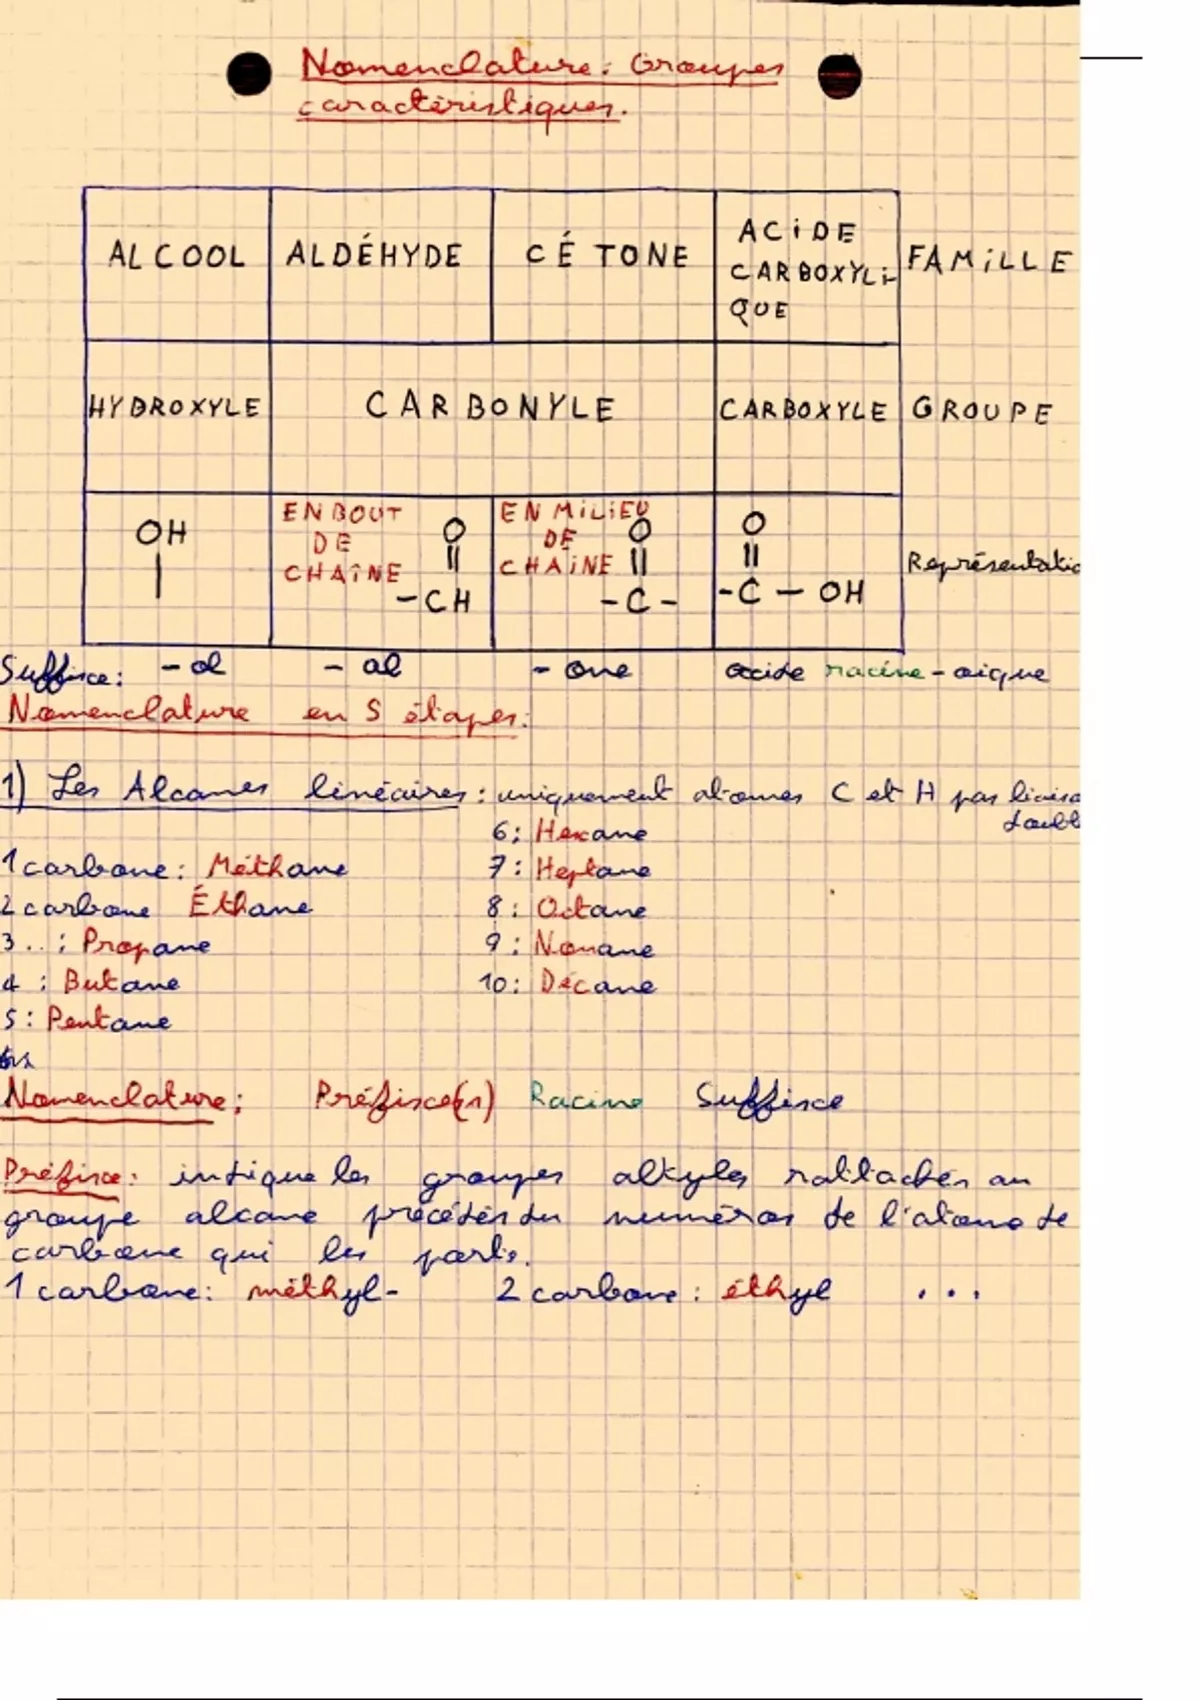 Nomenclature : Groupes
caractéristiques.
ALCOOL ALDÉHYDE CÉTONE ACIDE CARBOXYLIQUE FAMILLE
HYDROXYLE CARBONYLE CARBOXYLE GROUPE
OH
|
EN BOUT DE CHAÎNE
O
||
-CH
EN MILIEU DE CHAÎNE
O
||
-C-
O
||
-C-OH
Représentatio
Suffixe : -ol -al -one acide racine-oïque
Nomenclature en 5 étapes :
1) Les Alcanes linéaires : uniquement atomes C et H pas liaiso
doubl
1 carbone : Méthane
2 carbone Éthane
3.. : Propane
4 : Butane
5 : Pentane
6 : Hexane
7 : Heptane
8 : Octane
9 : Nonane
10 : Décane
Nomenclature : Préfixe(s) Racine Suffixe
Préfixe : indique les groupes alkyles rattachés au
groupe alcane précédés du numéros de l'atome de
carbone qui les porte.
1 carbone : méthyl- 2 carbone : éthyl ...